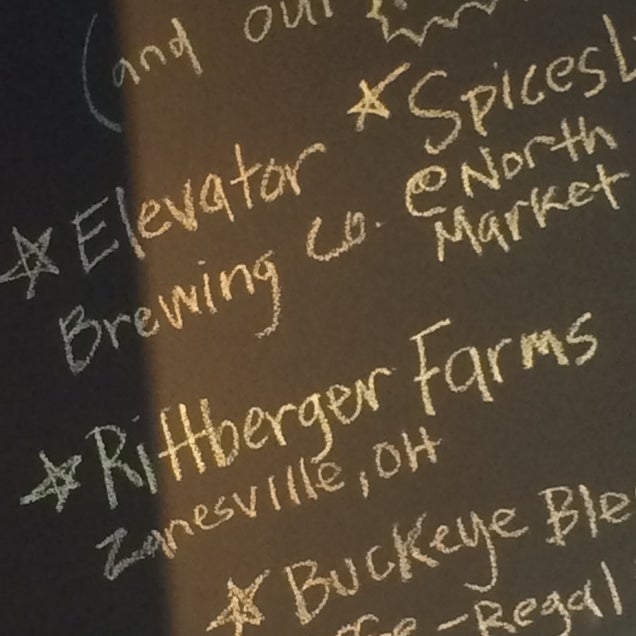 (and our
★ Spices
★ Elevator
Brewing Co.
@ North
Market
★ Rittberger Farms
Zanesville, OH
★ Buckeye Ble
-Regal